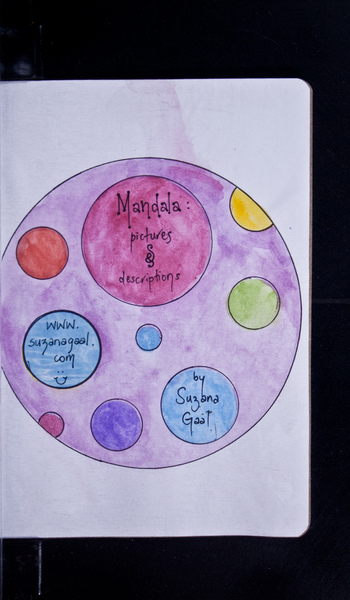 Mandala:
pictures
&
descriptions
www.
suzanagaal.
com
by
Suzana
Gaál